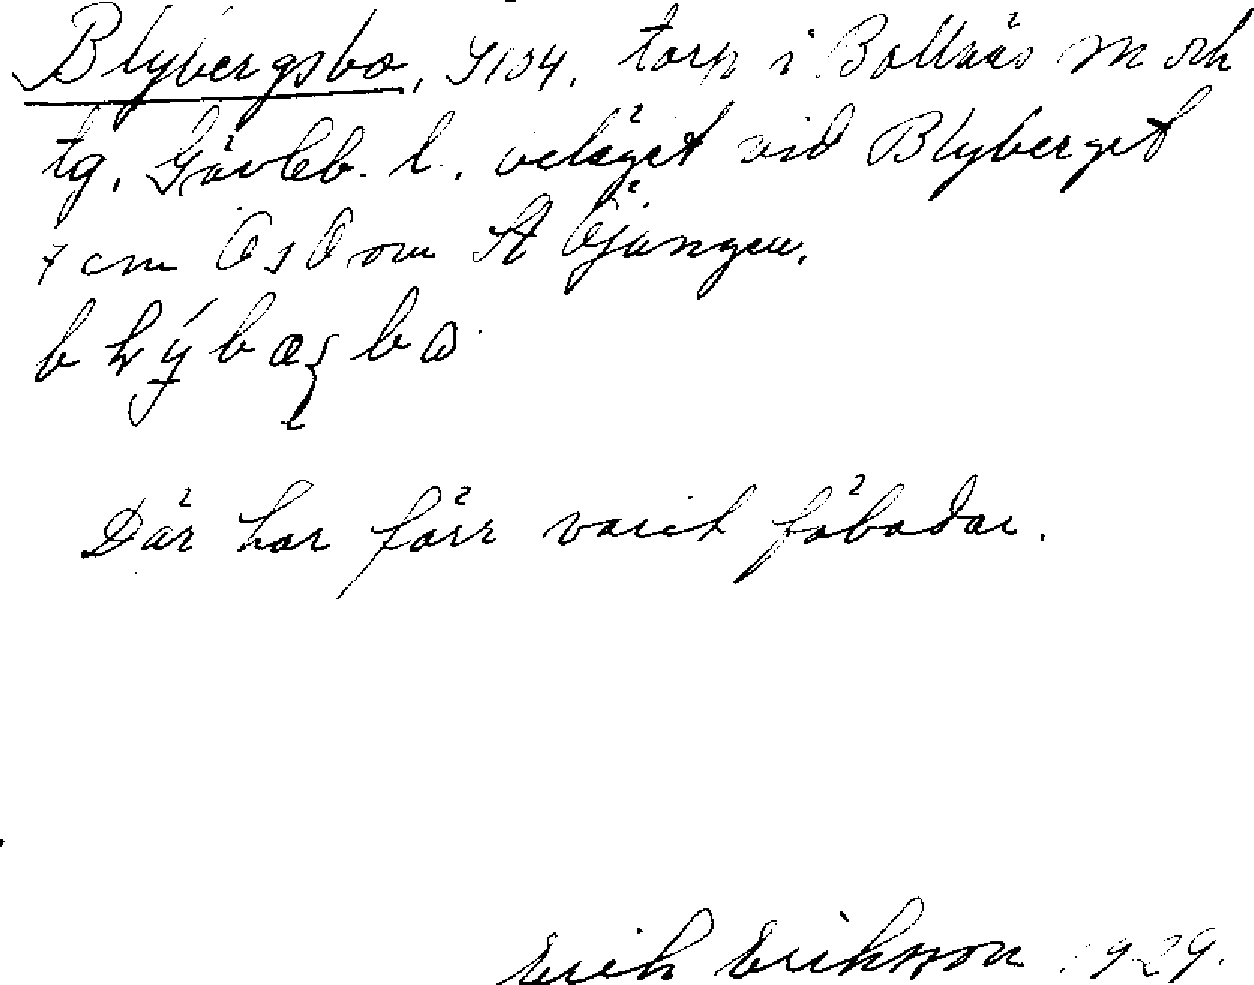 Blybergsbo, torp i Bollnäs sn och
tg. Gävleb. l. beläget vid Blyberget
7 cm OsO om St Öjungen.
Där har förr varit fäbodar.
Erik Eriksson 1929.